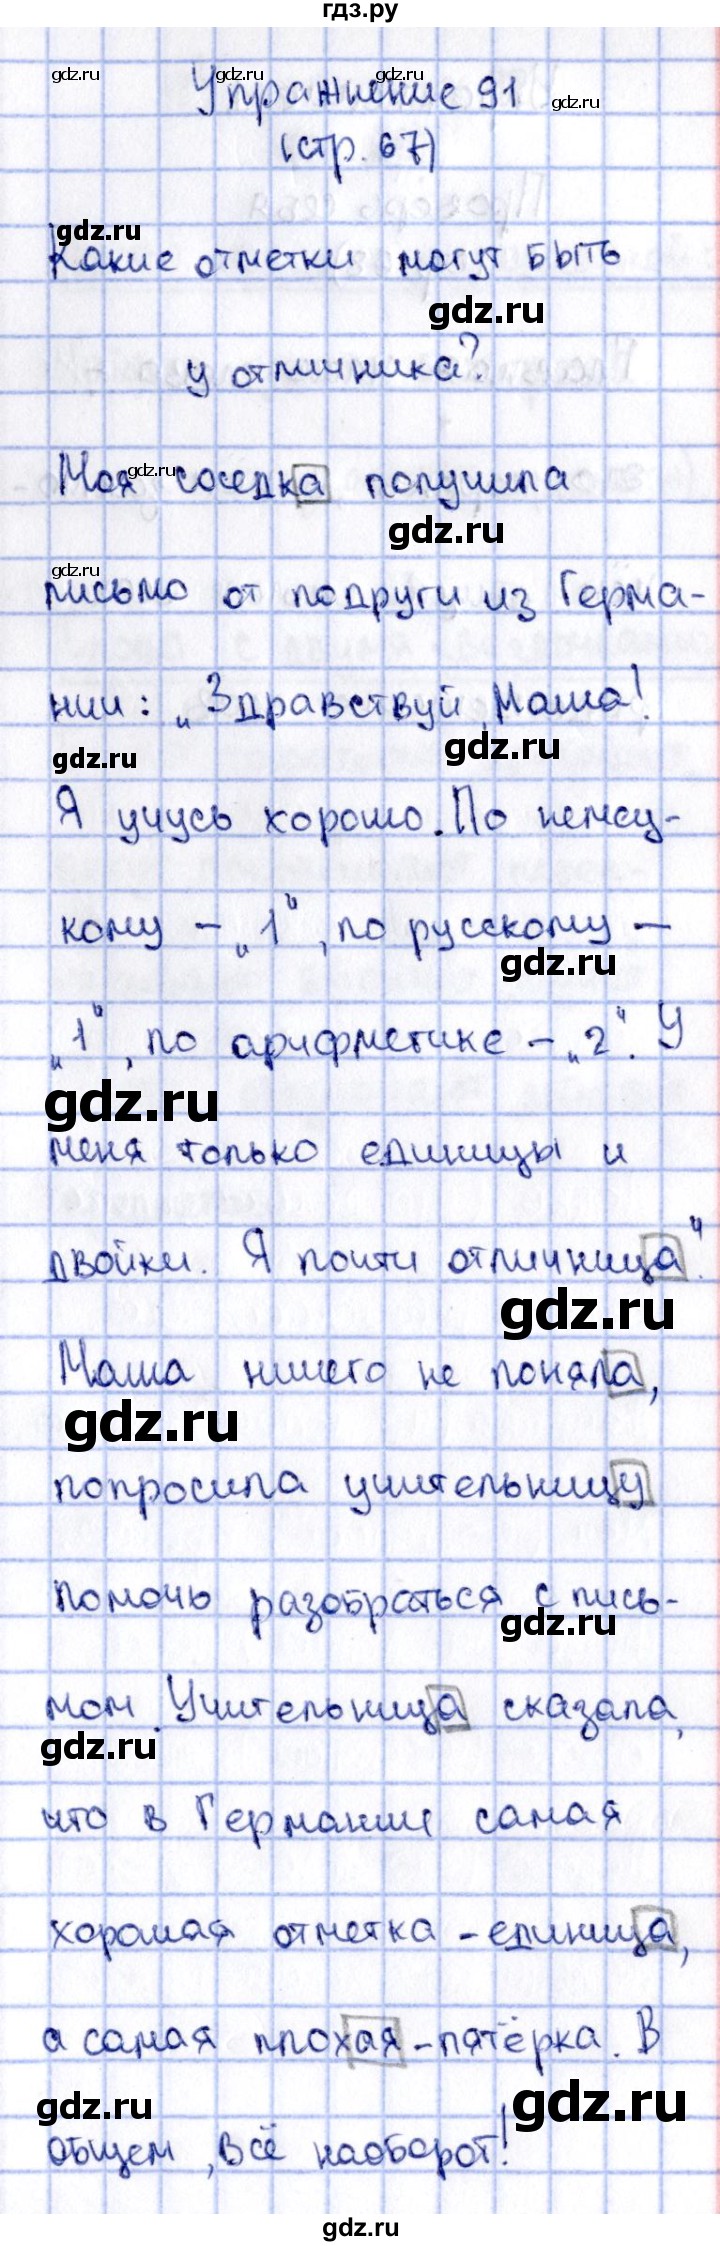 гдз.ру
gdz.ru gdz.ru gdz.ru
Упражнение 91
gdz.ru
(стр. 67)
gdz.ru
Какие отметки могут быть
gdz.ru
у отличника?
gdz.ru
Моя соседка получила
gdz.ru
gdz.ru
письмо от подруги из Герма-
нии: „Здравствуй, Маша!
gdz.ru
gdz.ru
Я учусь хорошо. По немец-
кому – „1“, по русскому –
gdz.ru
„1“, по арифметике – „2“. У
gdz.ru
меня только единицы и
двойки. Я почти отличница“.
gdz.ru
Маша ничего не поняла,
gdz.ru
попросила учительницу
помочь разобраться с пись-
gdz.ru
мом. Учительница сказала,
gdz.ru
что в Германии самая
хорошая отметка – единица,
а самая плохая – пятёрка. В
gdz.ru
gdz.ru
общем, всё наоборот!
gdz.ru